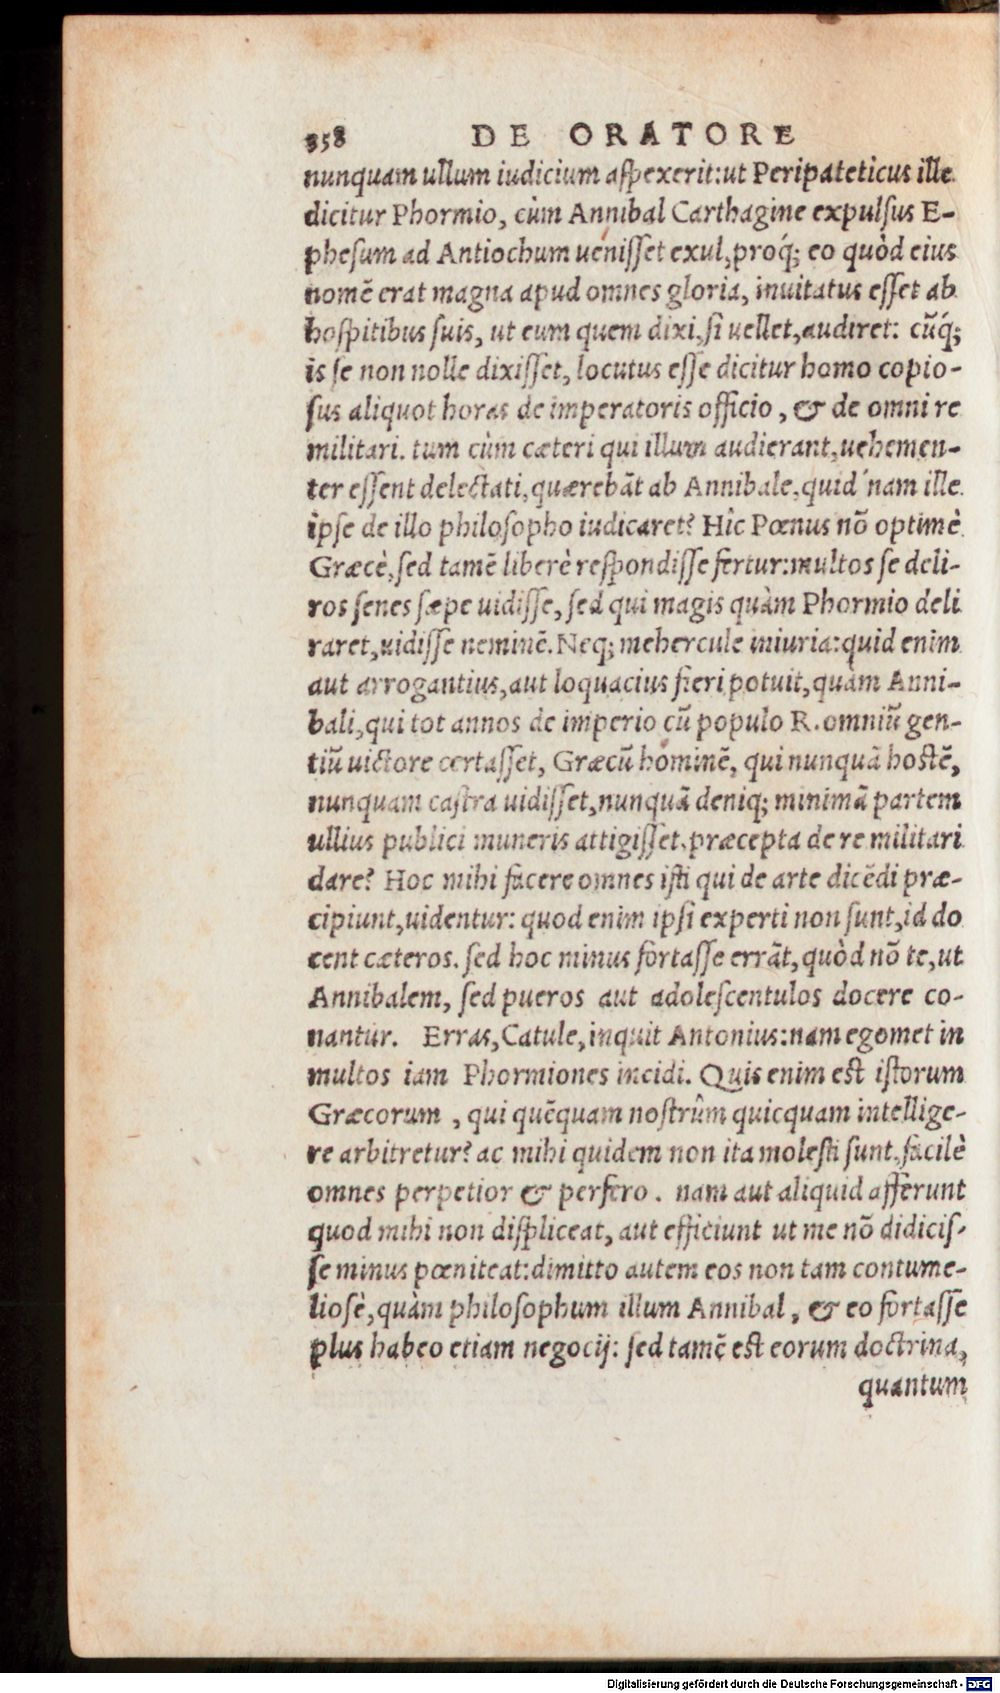 358 DE ORATORE
nunquam ullum iudicium aſpexerit:ut Peripateticus ille
dicitur Phormio, cùm Annibal Carthagine expulſus E-
pheſum ad Antiochum ueniſſet exul,proq́; eo quòd eius
nomē erat magna apud omnes gloria, inuitatus eſſet ab
hoſpitibus ſuis, ut eum quem dixi,ſi uellet,audiret: cūq́;
is ſe non nolle dixiſſet, locutus eſſe dicitur homo copio-
ſus aliquot horas de imperatoris officio, & de omni re
militari. tum cùm cæteri qui illum audierant,uehemen-
ter eſſent delectati,quærebāt ab Annibale,quid´nam ille
ipſe de illo philoſopho iudicaret? Hîc Pœnus nō optimè
Græcè,ſed tamē liberè reſpondiſſe fertur:multos ſe deli-
ros ſenes ſæpe uidiſſe, ſed qui magis quàm Phormio deli
raret,uidiſſe neminē.Neq; mehercule iniuria:quid enim
aut arrogantius,aut loquacius fieri potuit,quàm Anni-
bali,qui tot annos de imperio cū populo R.omniū gen-
tiū uictore certaſſet, Græcū hominē, qui nunquā hoſtē,
nunquam caſtra uidiſſet,nunquā deniq; minimā partem
ullius publici muneris attigiſſet,præcepta de re militari
dare? Hoc mihi facere omnes iſti qui de arte dicēdi præ-
cipiunt,uidentur: quod enim ipſi experti non ſunt,id do
cent cæteros. ſed hoc minus fortaſſe errāt,quòd nō te,ut
Annibalem, ſed pueros aut adoleſcentulos docere co-
nantur. Erras,Catule,inquit Antonius:nam egomet in
multos iam Phormiones incidi. Quis enim eſt iſtorum
Græcorum , qui quēquam noſtrûm quicquam intellige-
re arbitretur? ac mihi quidem non ita moleſti ſunt,facilè
omnes perpetior & perfero. nam aut aliquid afferunt
quod mihi non diſpliceat, aut efficiunt ut me nō didiciſ-
ſe minus pœniteat:dimitto autem eos non tam contume-
lioſè,quàm philoſophum illum Annibal, & eo fortaſſe
plus habeo etiam negocij: ſed tamē eſt eorum doctrina,
quantum
Digitalisierung gefördert durch die Deutsche Forschungsgemeinschaft - DFG